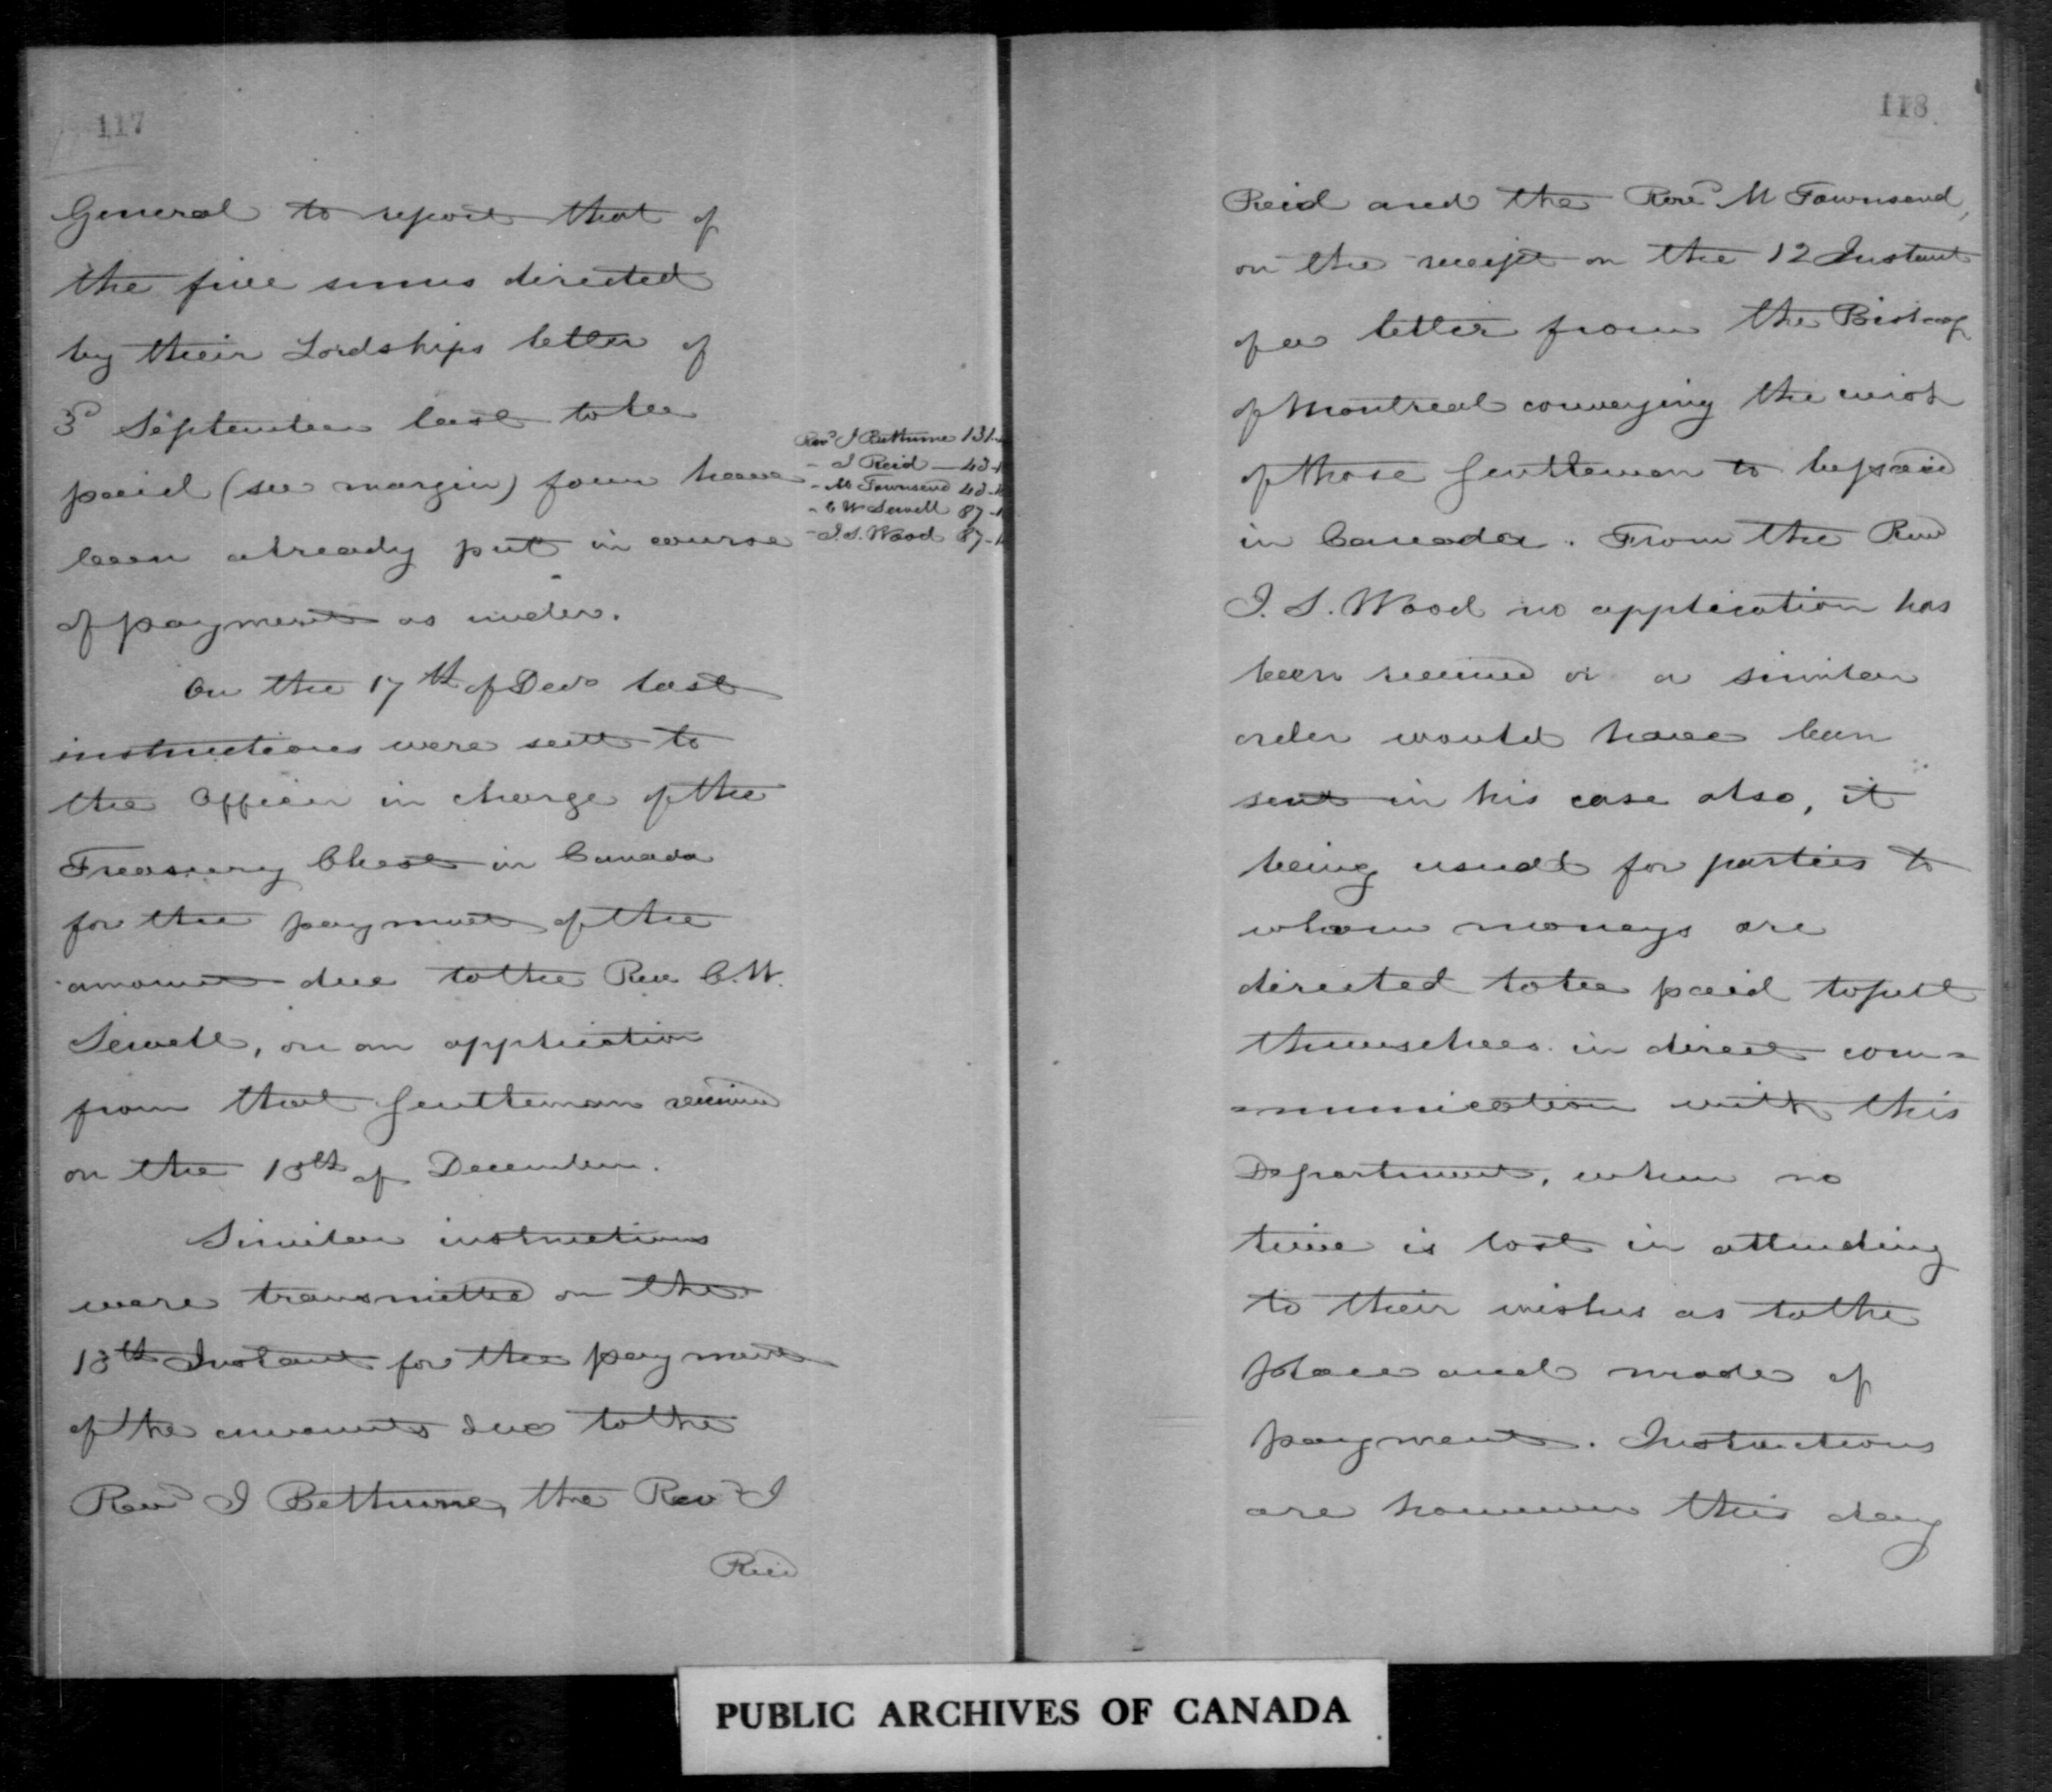 117
General to report that of
the five sums directed
by their Lordships letter of
3d September last to be
paid (see margin) four have
been already put in course
of payment as under.
Revd J Bethune 131
- J Reid — 43
- M Townsend 43
- C W Sewell 87
- J. S. Wood 87
On the 17th of Decr last
instructions were sent to
the Officer in charge of the
Treasury Chest in Canada
for the payment of the
amount due to the Rev C. W.
Sewell, on an application
from that Gentleman received
on the of December.
Similar instructions
were transmitted on the
13th Instant for the payment
of the amounts due to the
Revd J Bethune, the Revd J
Reid
118
Reid and the Revd M Townsend,
on the receipt on the 12 Instant
of a letter from the Bishop
of Montreal conveying the wish
of those Gentlemen to be paid
in Canada. From the Revd
J. S. Wood no application has
been received or a similar
order would have been
sent in his case also, it
being usual for parties to
whom moneys are
directed to be paid to put
themselves in direct com=
=munication with this
Department, when no
time is lost in attending
to their wishes as to the
place and mode of
payment. Instructions
are however this day
PUBLIC ARCHIVES OF CANADA